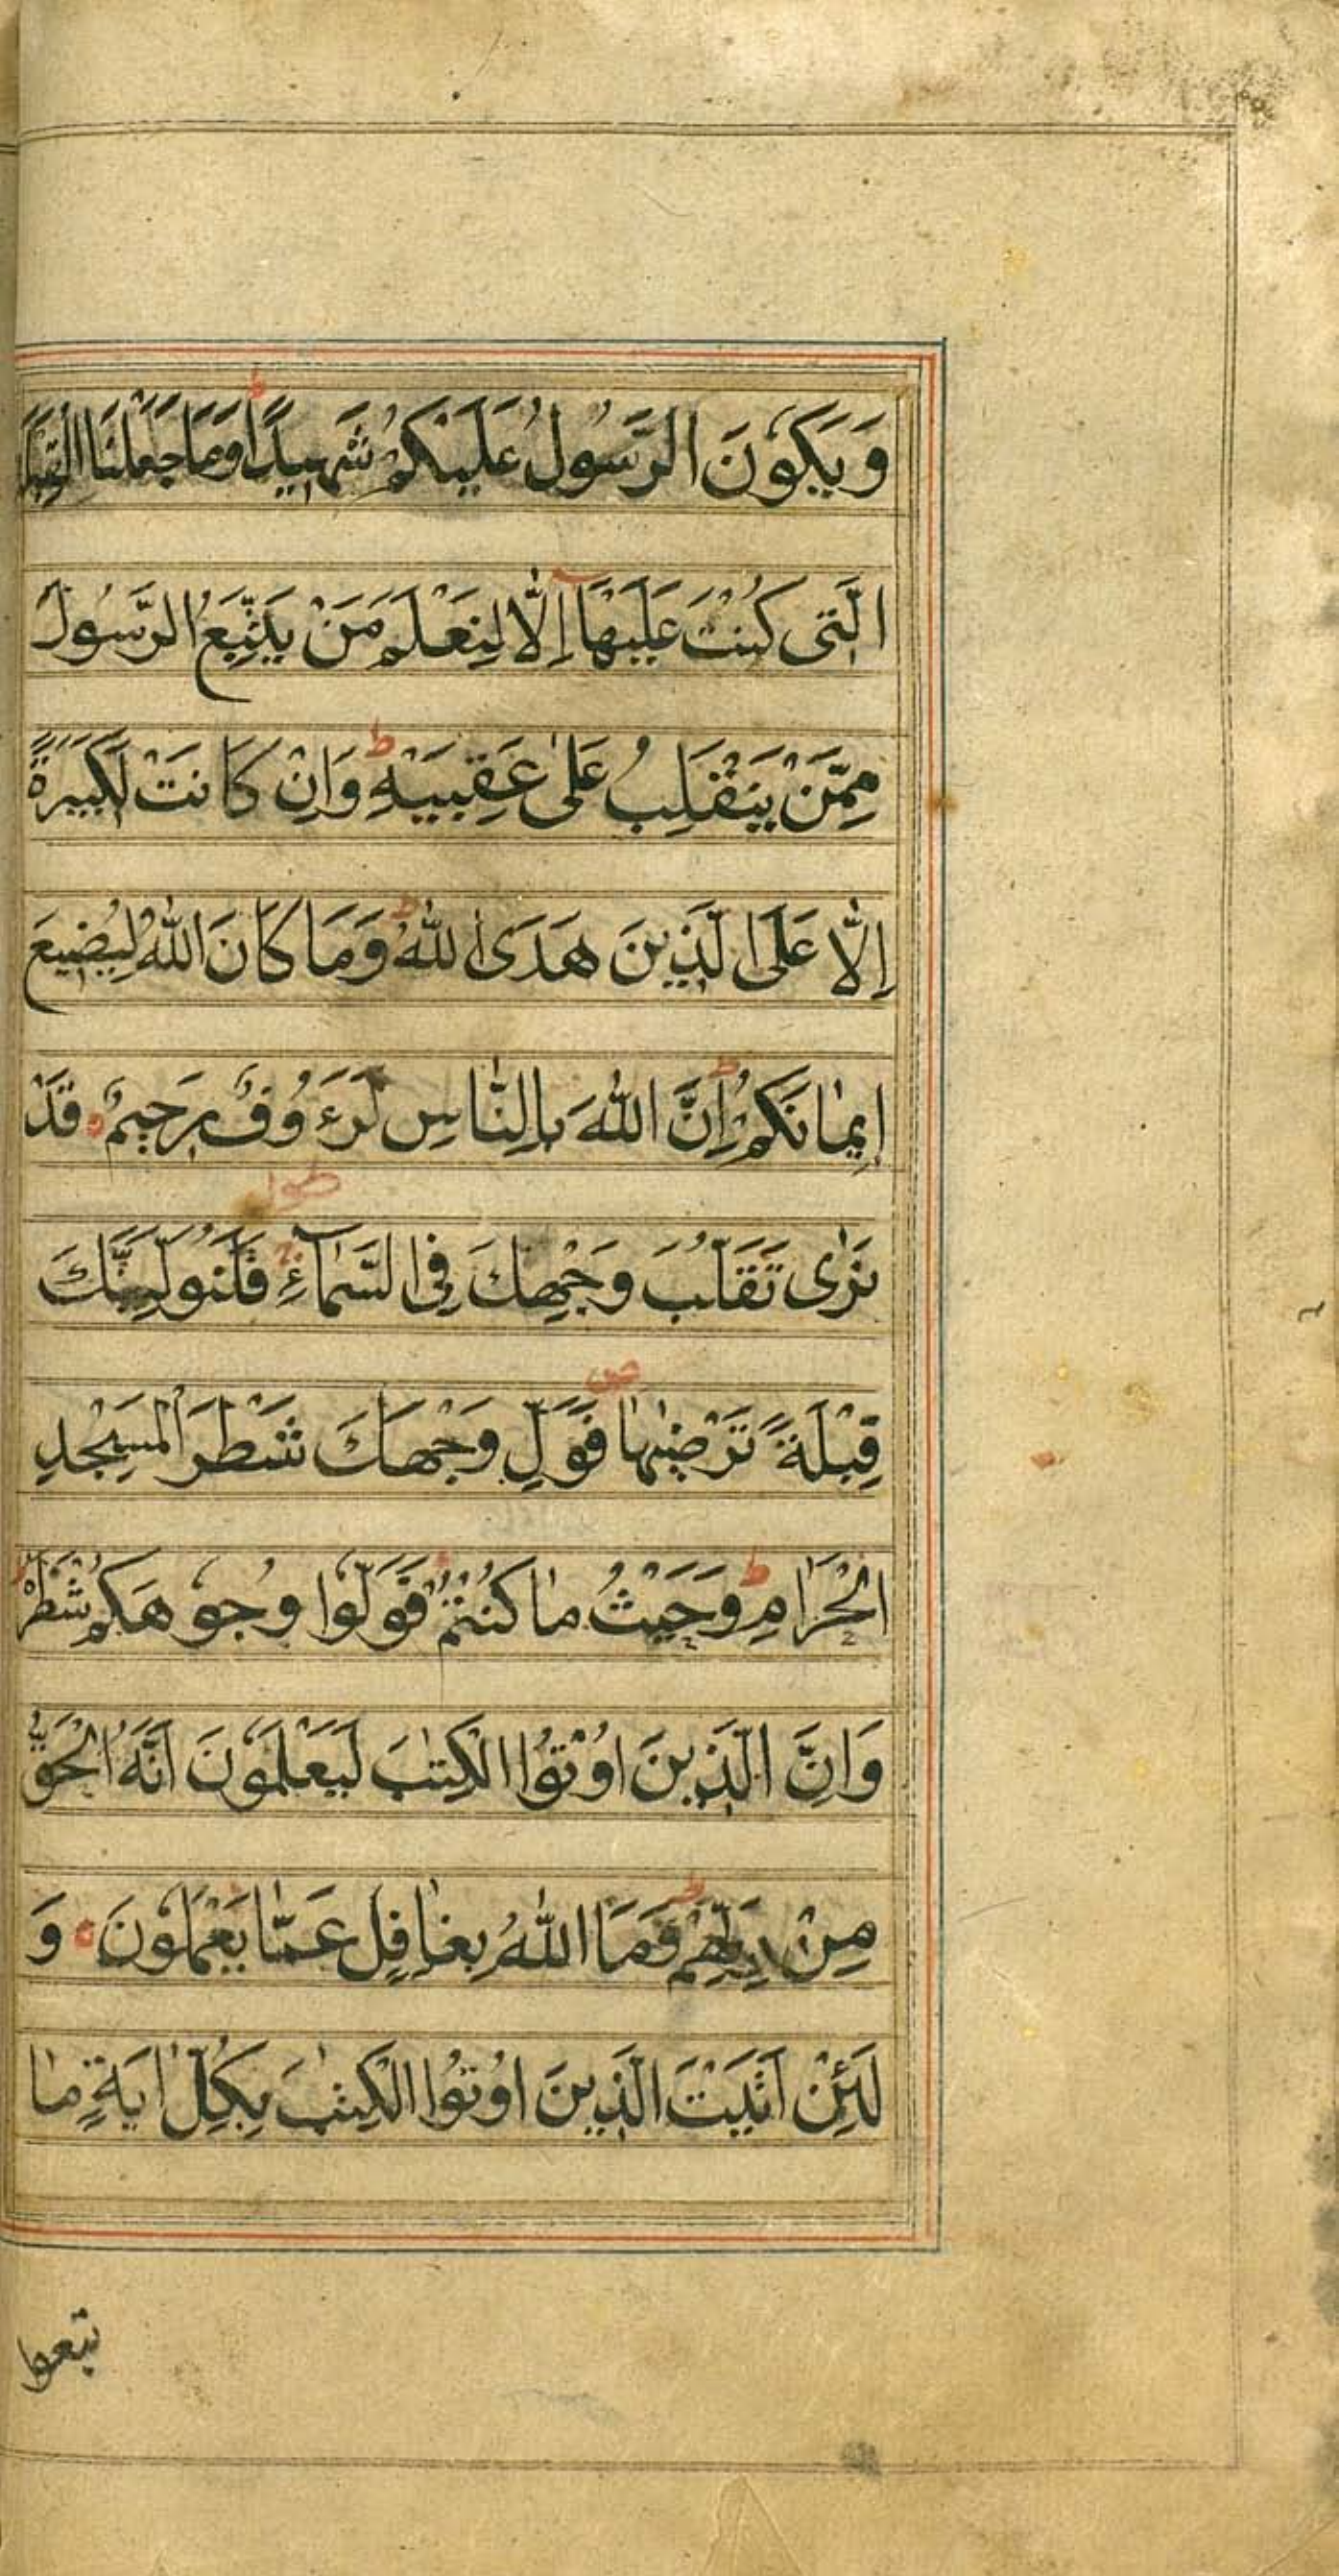 وَيَكُونَ الرَّسُولُ عَلَيْكُمْ شَهِيدًا ط وَمَا جَعَلْنَا الْقِبْلَةَ
الَّتِى كُنْتَ عَلَيْهَآ اِلَّا لِنَعْلَمَ مَنْ يَتَّبِعُ الرَّسُولَ
مِمَّنْ يَنْقَلِبُ عَلٰى عَقِبَيْهِ ط وَاِنْ كَانَتْ لَكَبِيرَةً
اِلَّا عَلَى الَّذِينَ هَدَى اللّٰهُ ط وَمَا كَانَ اللّٰهُ لِيُضِيعَ
اِيمٰانَكُمْ ط اِنَّ اللّٰهَ بِالنّٰاسِ لَرَءُوُفٌ رَحِيمٌ ه قَدْ
نَرٰى تَقَلُّبَ وَجْهِكَ فِى السَّمٰآءِ ج فَلَنُوَلِّيَنَّكَ
قِبْلَةً تَرْضٰىهٰا ص فَوَلِّ وَجْهَكَ شَطْرَ الْمَسْجِدِ
الْحَرٰامِ ط وَحَيْثُ مٰا كُنْتُمْ فَوَلُّوا وُجُوهَكُمْ شَطْرَهُ ط
وَاِنَّ الَّذِينَ اُوْتُوا الْكِتٰبَ لَيَعْلَمُونَ اَنَّهُ الْحَقُّ
مِنْ رَبِّهِمْ ط وَمَا اللّٰهُ بِغٰافِلٍ عَمّٰا يَعْمَلُونَ ه وَ
لَئِنْ اَتَيْتَ الَّذِينَ اُوْتُوا الْكِتٰبَ بِكُلِّ اٰيَةٍ مٰا
تبعوا